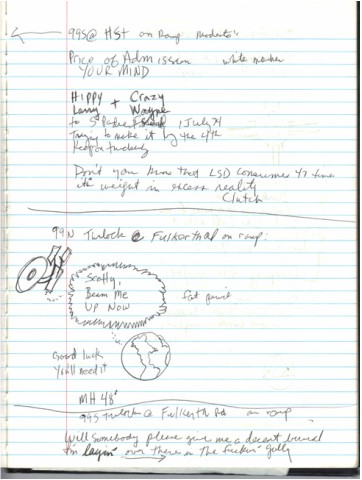 99S @ HSt on Ramp Modesto
Price of Admission white marker
YOUR MIND
Hippy + Crazy
Larry Wayne
to S. Padre Island 1 July 74
Trying to make it by the 4th
Don't you know that LSD consumes 47 times
its weight in excess reality
Clutch
99N Turlock @ Fulkerth Rd on ramp:
Scotty,
Beam Me
UP NOW
Good luck
You'll need it
MH 48'
99S Turlock @ Fulkerth Rd on ramp
Will somebody please give me a decent burial
I'm layin' over there in the fuckin' gully